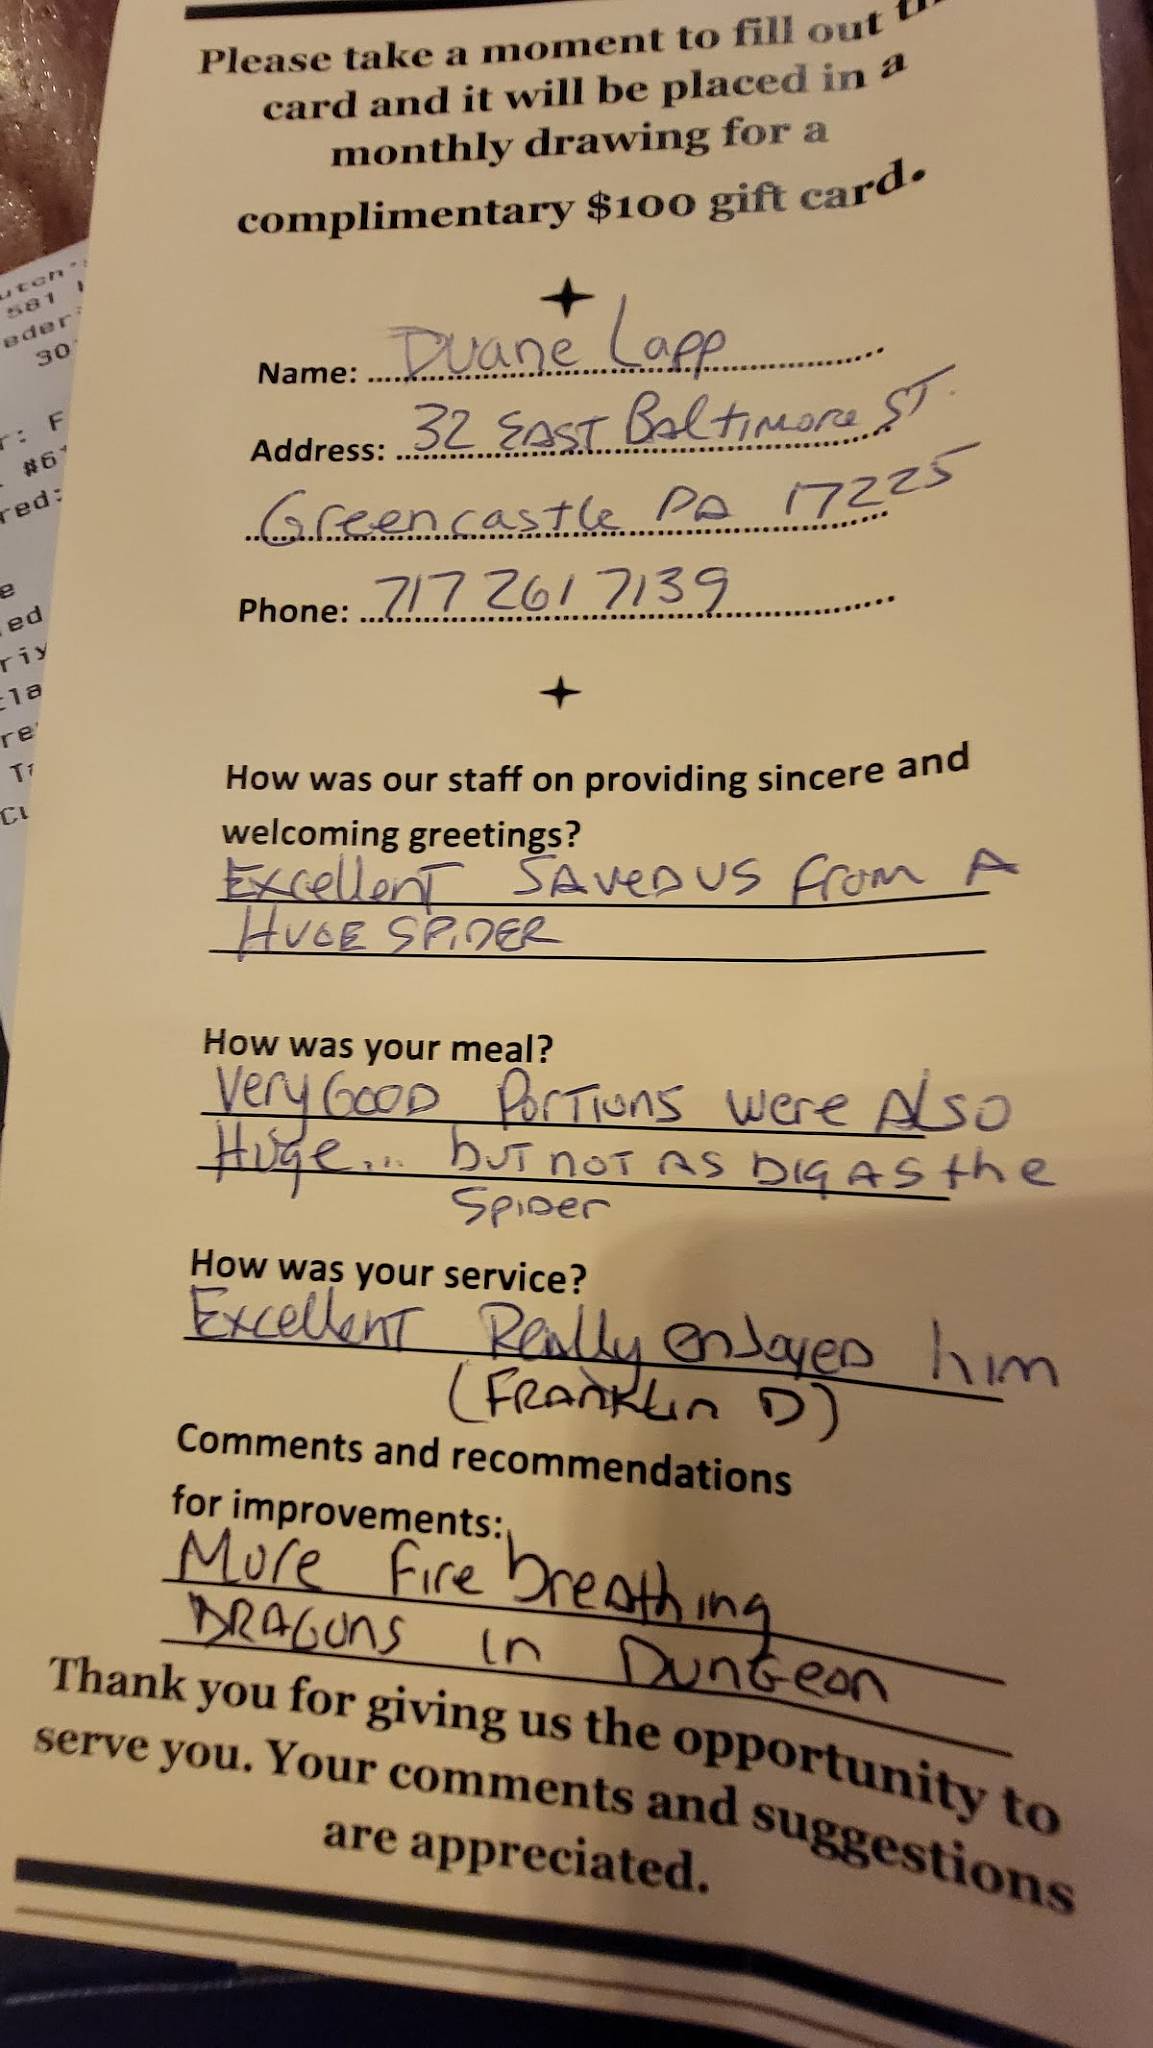 Please take a moment to fill out
card and it will be placed in a
monthly drawing for a
complimentary $100 gift card.
Name: Duane Lapp
Address: 32 EAST BALTIMORE ST.
Greencastle PA 17225
Phone: 717 261 7139
How was our staff on providing sincere and
welcoming greetings?
Excellent SAVED US from A
HUGE SPIDER
How was your meal?
Very GOOD PORTIONS were ALSO
Huge... but NOT AS BIG AS the
SPIDer
How was your service?
Excellent Really enjoyed him
(FRANKLIn D)
Comments and recommendations
for improvements:
More Fire breathing
DRAGONS in Dungeon
Thank you for giving us the opportunity to
serve you. Your comments and suggestions
are appreciated.
581
eder
30
#6
red:
ed